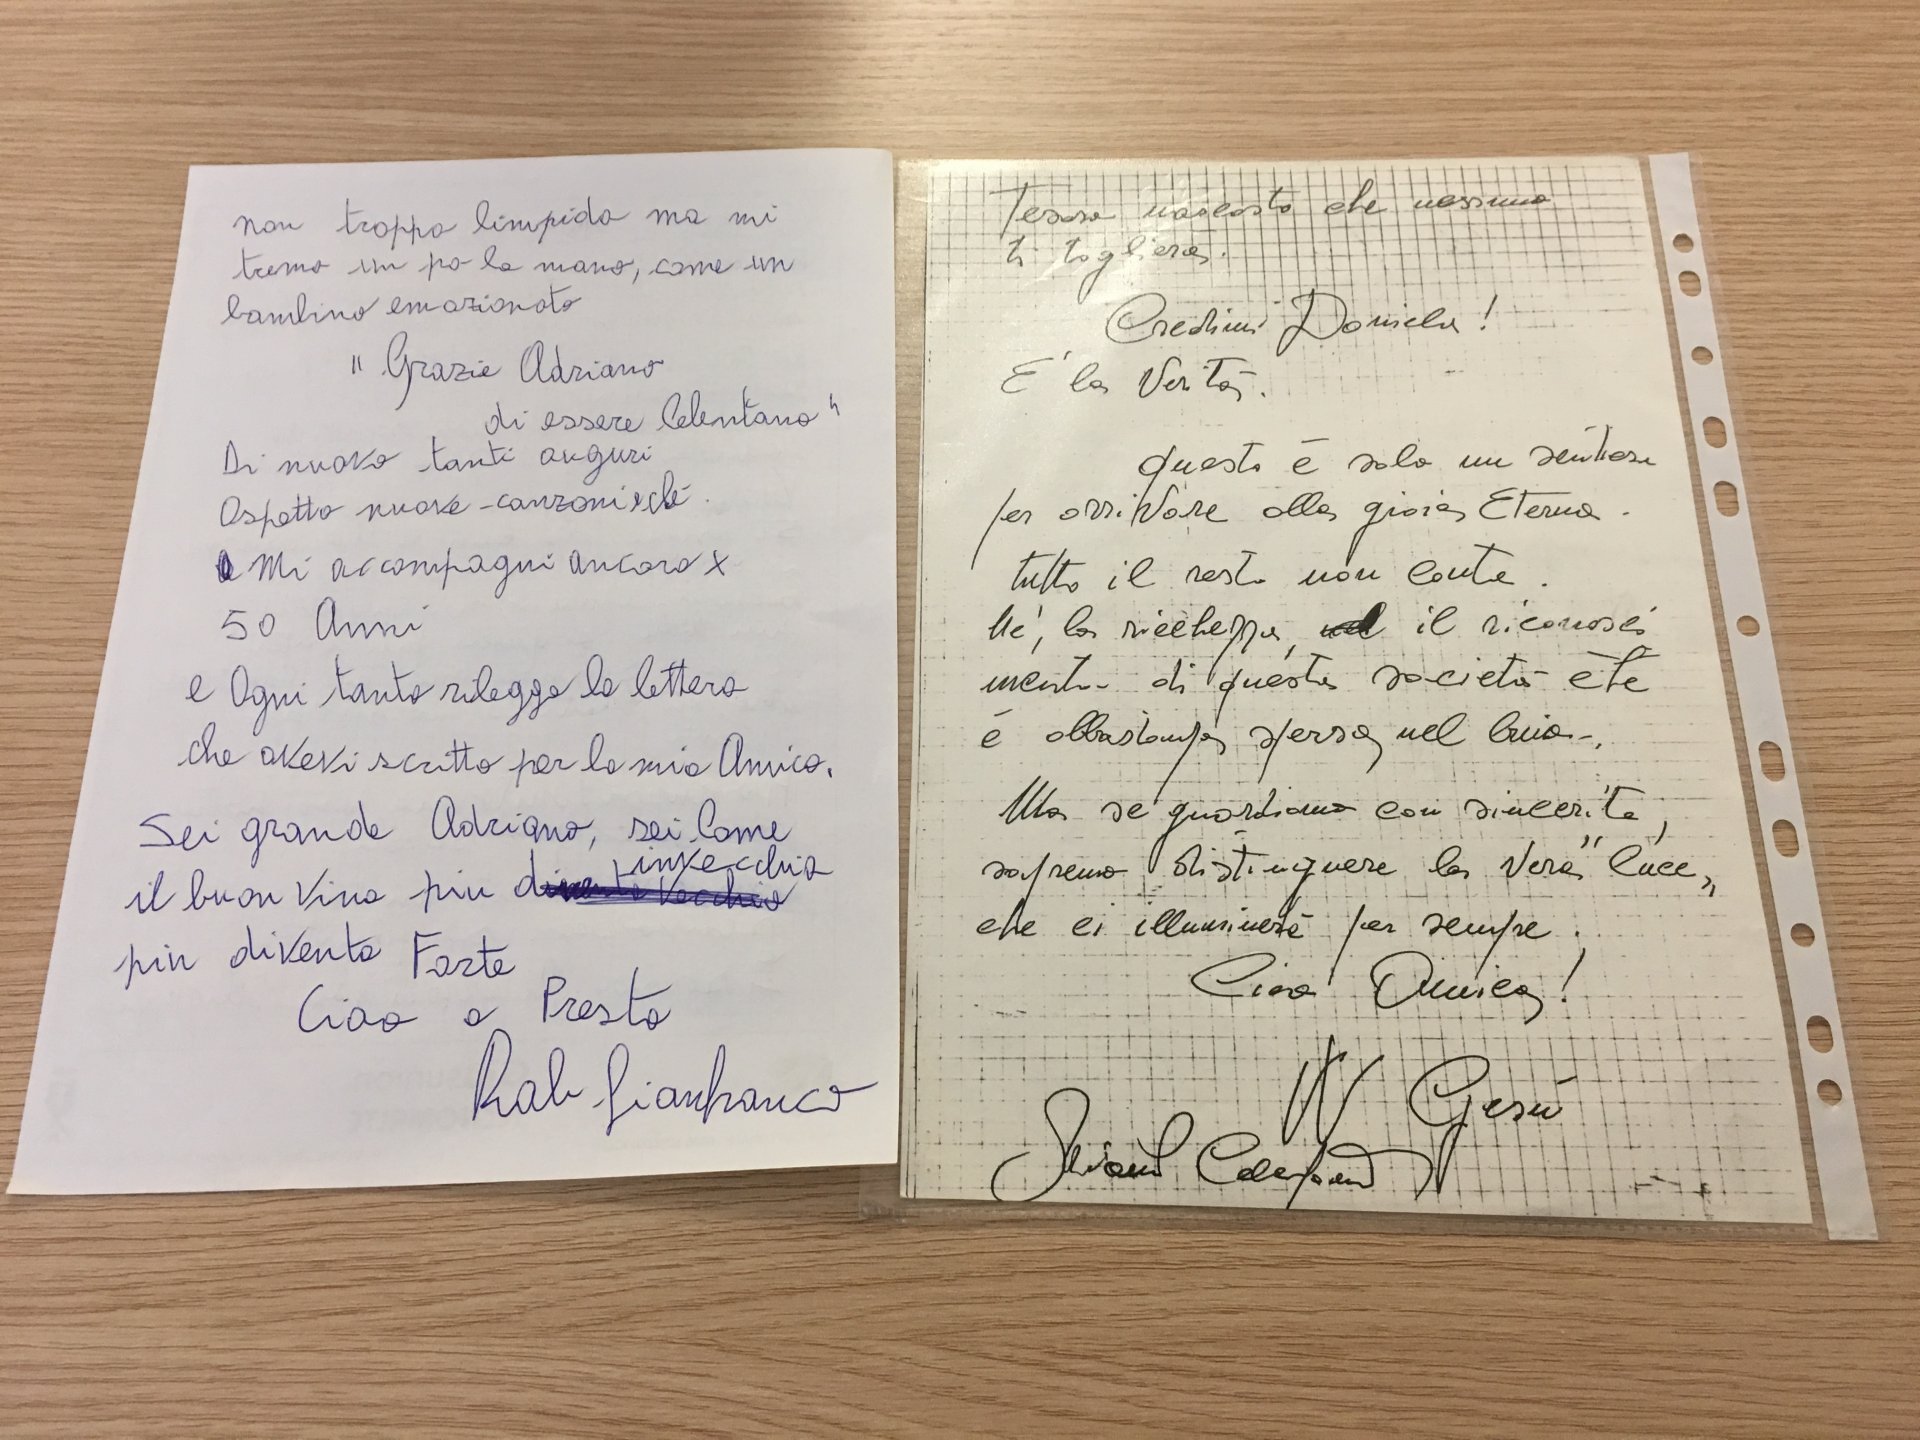 non troppo limpida ma mi
trema un po la mano, come un
bambino emozionato
"Grazie Adriano
di essere Celentano"
Di nuovo tanti auguri
Aspetto nuove canzoni e che
Mi accompagni ancora x
50 Anni
e Ogni tanto rileggo la lettera
che avevi scritto per la mia Amica.
Sei grande Adriano, sei Come
invecchia
il buon Vino più
più diventa Forte
Ciao a Presto
Gianfranco
Tesoro nascosto che nessuno
ti toglierà.
Credimi Daniela!
E' la Verità.
questo è solo un sentiero
per arrivare alla gioia Eterna.
tutto il resto non conta.
Né, la ricchezza, il riconosci
mento di questa società che
è abbastanza spersa nel buio.
Ma se guardiamo con sincerità,
sapremo distinguere la Vera "luce"
che ci illuminerà per sempre.
Ciao Amica!
W Gesù
Adriano Celentano